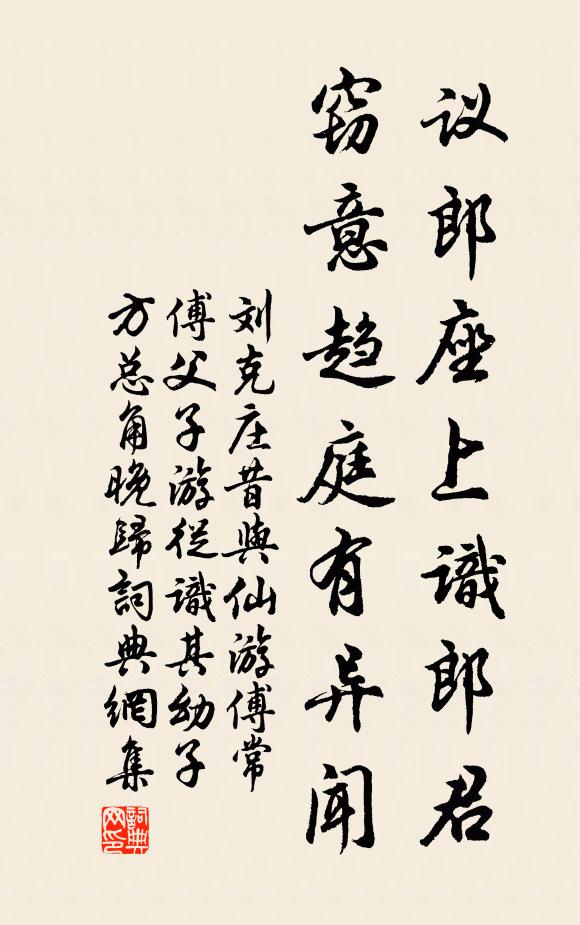 议郎座上識郎君
窃意趋庭有异闻
刘克庄昔與仙游傅常
傅父子游從識其幼子
方总角晚歸詞典網集
詞典网印